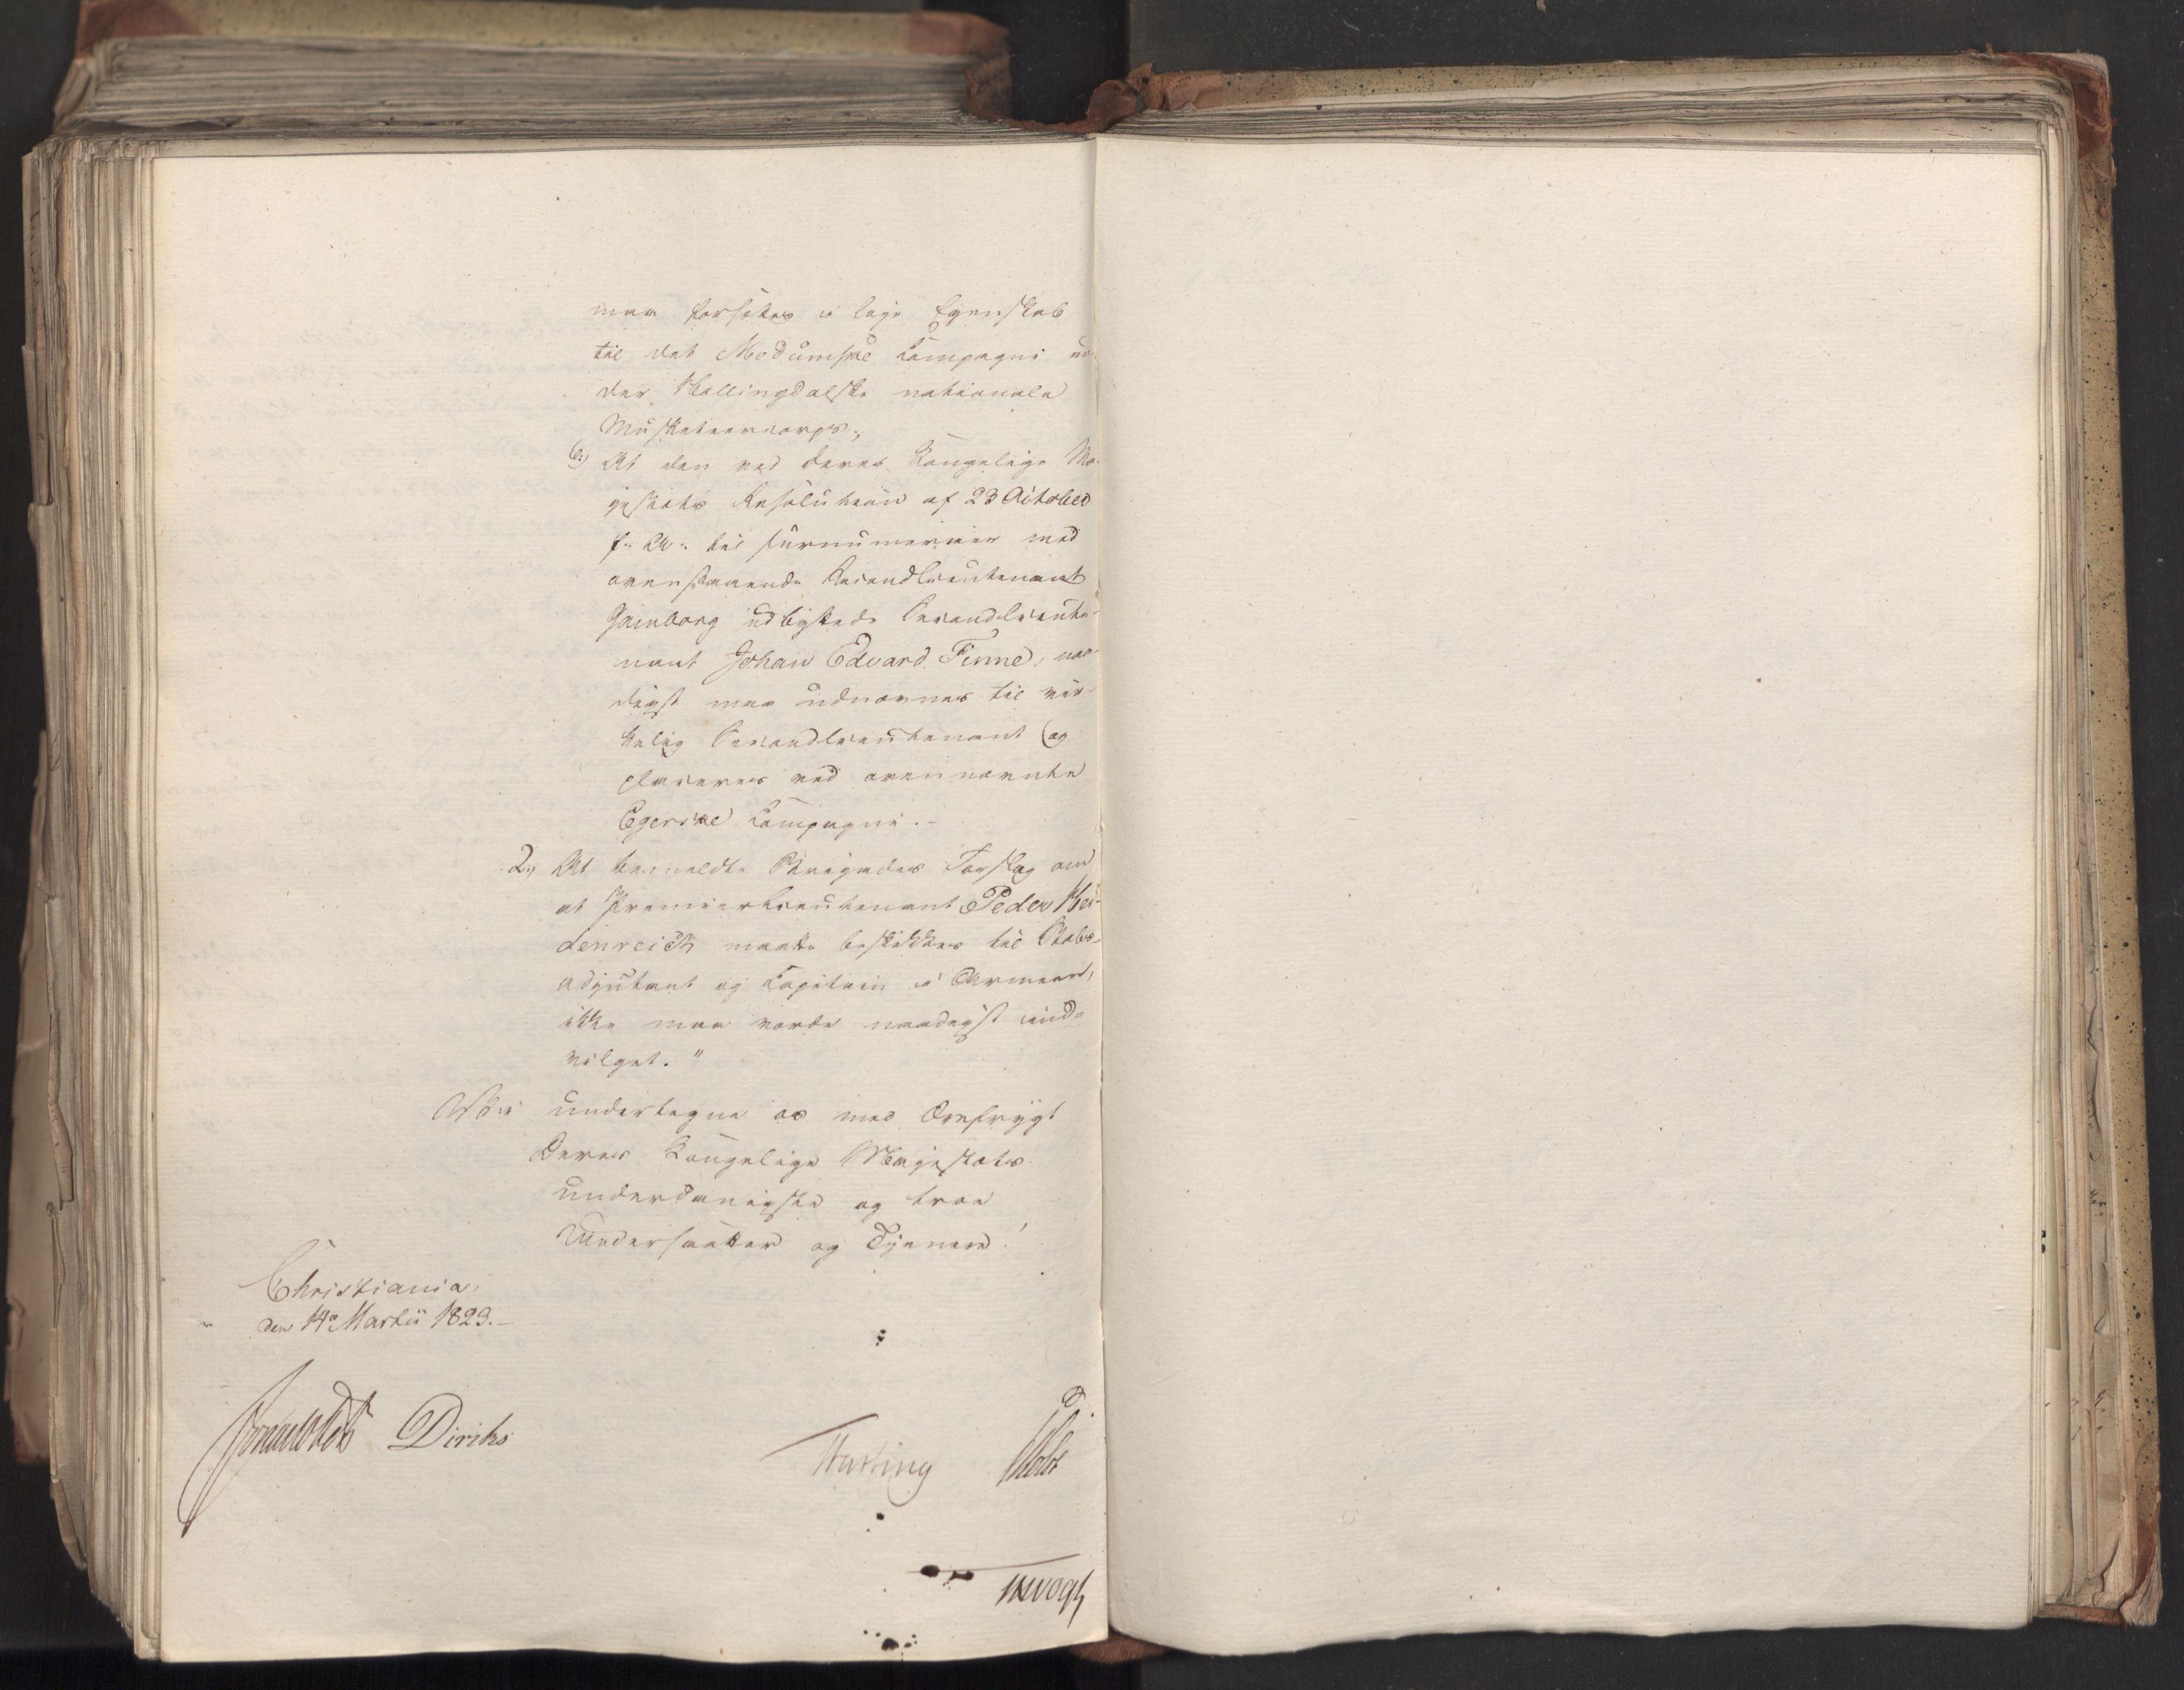 maa forsættes i lige Egenskab
til det Modumske Kompagni un-
der Hallingdalske nationale
Musketeercorps;
6;) At den ved Deres Kongelige Ma-
jestæts Resolution af 23 October
f: A: til surnumerair med
ovenstaaende Secondlieutenant
udbyttede Secondlieute-
nant Johan Edvard Finne, naa-
digst maa udnævnes til vir-
kelig Secondlieutenant og
placeres ved ovennævnte
Egerske Kompagni.-
2;) At bemeldte Brigades Forslag om
at Premierlieutenant Peder Hei-
denreich maatte beskikkes til Stabs-
adjutant og Kapitain i Armeen,
ikke maa vorde naadigst ind-
vilget."
Vi undertegne os med Ærefrygt
Deres Kongelige Majestæts
underdanigste og troe
Undersaatter og Tjenere!
Christiania,
den 14de Martii 1823.-
Diriks